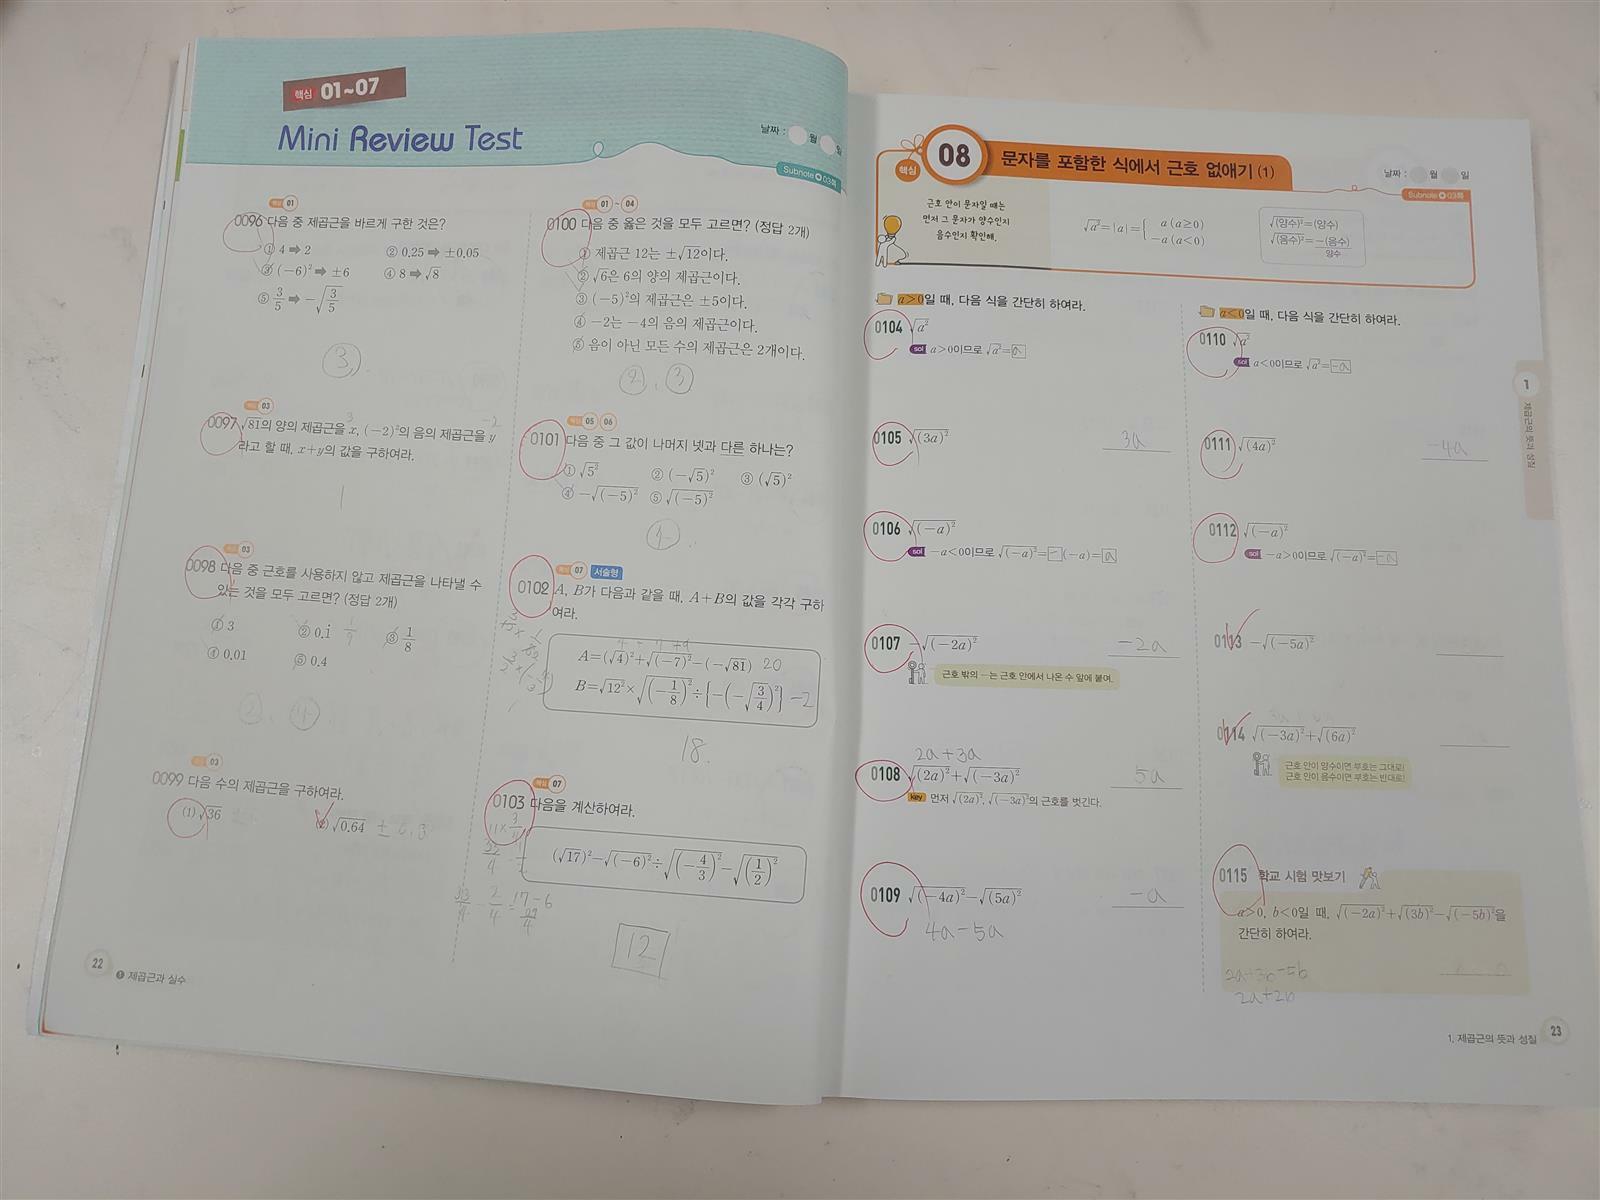 핵심 01~07
Mini Review Test
날짜 : 월 일
Subnote 03쪽
핵심 01
0096 다음 중 제곱근을 바르게 구한 것은?
① 4 ➡ 2 ② 0.25 ➡ ±0.05
③ (−6)² ➡ ±6 ④ 8 ➡ √8
⑤ 3/5 ➡ −√(3/5)
③
핵심 03
0097 √81의 양의 제곱근을 x, (−2)²의 음의 제곱근을 y
3 −2
라고 할 때, x+y의 값을 구하여라.
1
핵심 03
0098 다음 중 근호를 사용하지 않고 제곱근을 나타낼 수
있는 것을 모두 고르면? (정답 2개)
① 3 ② 0.1̇ 1/9 ③ 1/8
④ 0.01 ⑤ 0.4
②, ④
핵심 03
0099 다음 수의 제곱근을 구하여라.
(1) √36 (2) √0.64
핵심 01 ~ 04
0100 다음 중 옳은 것을 모두 고르면? (정답 2개)
① 제곱근 12는 ±√12이다.
② √6은 6의 양의 제곱근이다.
③ (−5)²의 제곱근은 ±5이다.
④ −2는 −4의 음의 제곱근이다.
⑤ 음이 아닌 모든 수의 제곱근은 2개이다.
②, ③
핵심 05 06
0101 다음 중 그 값이 나머지 넷과 다른 하나는?
① √5² ② (−√5)² ③ (√5)²
④ −√(−5)² ⑤ √(−5)²
④
핵심 07 서술형
0102 A, B가 다음과 같을 때, A+B의 값을 각각 구하
여라.
A=(√4)²+√(−7)²−(−√81) 20
B=√12²×√(−1/8)²÷{−(−√(3/4))²} −2
18.
핵심 07
0103 다음을 계산하여라.
(√17)²−√(−6)²÷√(−4/3)²−√(1/2)²
12
22 ❶ 제곱근과 실수
핵심 08 문자를 포함한 식에서 근호 없애기 (1)
날짜 : 월 일
Subnote 03쪽
근호 안이 문자일 때는
먼저 그 문자가 양수인지
음수인지 확인해.
√a²=|a|= a (a≥0)
−a (a<0)
√(양수)²=(양수)
√(음수)²=−(음수)
양수
a>0일 때, 다음 식을 간단히 하여라.
0104 √a²
sol a>0이므로 √a²=a
0105 √(3a)² 3a
0106 √(−a)²
sol −a<0이므로 √(−a)²=−(−a)=a
0107 −√(−2a)² −2a
근호 밖의 −는 근호 안에서 나온 수 앞에 붙여.
2a+3a
0108 √(2a)²+√(−3a)² 5a
key 먼저 √(2a)², √(−3a)²의 근호를 벗긴다.
0109 √(−4a)²−√(5a)² −a
4a−5a
a<0일 때, 다음 식을 간단히 하여라.
0110 √a²
sol a<0이므로 √a²=−a
0111 √(4a)² −4a
0112 √(−a)²
sol −a>0이므로 √(−a)²=−a
0113 −√(−5a)²
0114 √(−3a)²+√(6a)²
근호 안이 양수이면 부호는 그대로!
근호 안이 음수이면 부호는 반대로!
0115 학교 시험 맛보기
a>0, b<0일 때, √(−2a)²+√(3b)²−√(−5b)²을
간단히 하여라.
2a+3b−5b
2a+2b
1
제곱근의 뜻과 성질
1. 제곱근의 뜻과 성질 23